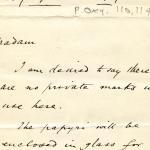 P. Oxy. 110, 114
Madam
I am desired to say there
are no private marks in
use here.
The papyri will be
enclosed in glass for